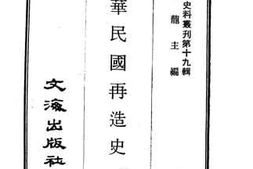 史料叢刊第十九輯
龍主編
華民國再造史
文海出版社